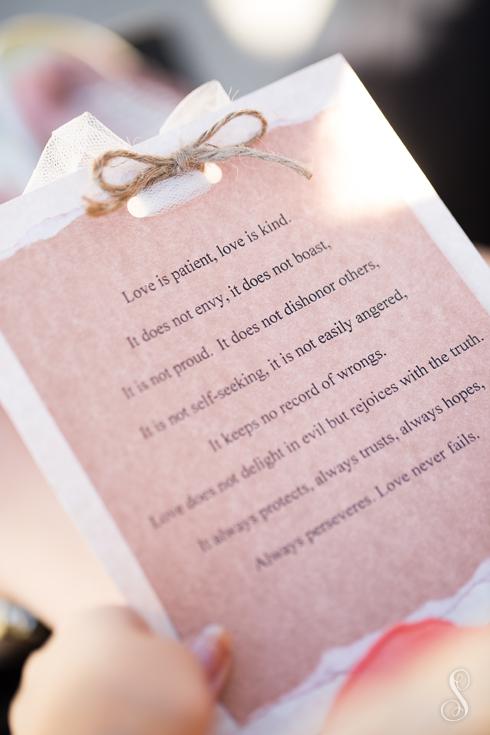 Love is patient, love is kind.
It does not envy, it does not boast,
It is not proud. It does not dishonor others,
It is not self-seeking, it is not easily angered,
It keeps no record of wrongs.
Love does not delight in evil but rejoices with the truth.
It always protects, always trusts, always hopes,
Always perseveres. Love never fails.
S